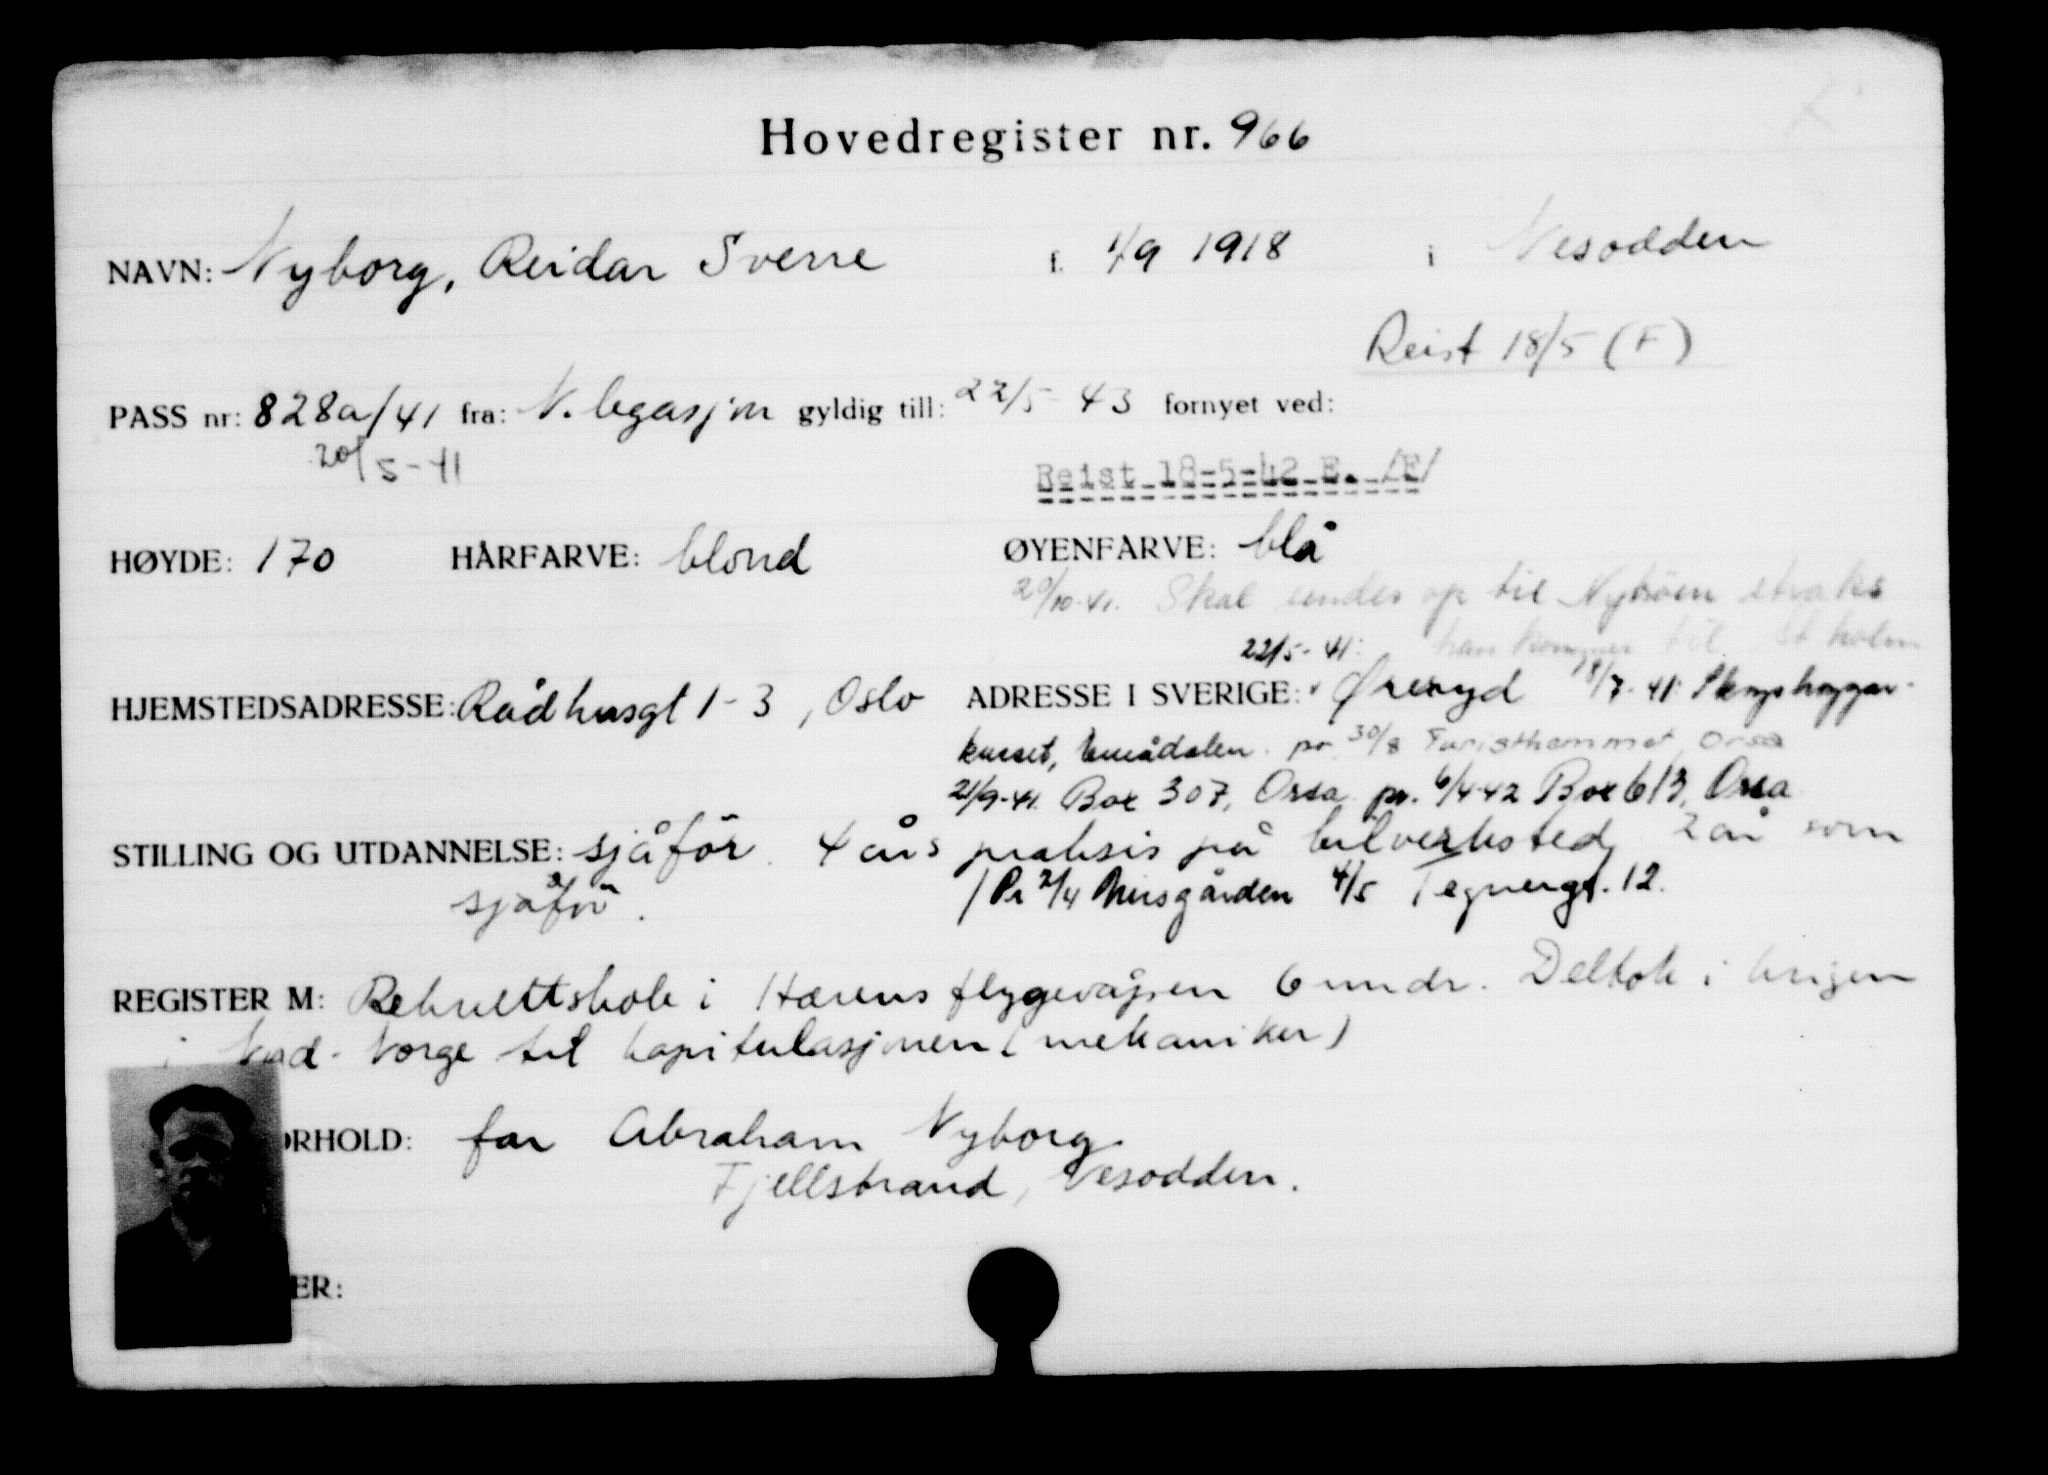 Hovedregister nr. 966
NAVN: Nyborg, Reidar Sverre f. 1/9 1918 i Nesodden
Reist 18/5 (F)
PASS nr: 828a/41 fra: N. legasjon gyldig till: 22/5 43 fornyet ved:
20/5-41
Reist 18-5-42 E. /F/
HØYDE: 170 HÅRFARVE: blond ØYENFARVE: blå
20/10-41. Skal sendes op til straks
22/5-41: han kommer til St holm
HJEMSTEDSADRESSE: Rådhusgt 1-3, Oslo ADRESSE I SVERIGE: Øreryd 18/7-41 Skogshuggar-
kurset, Emådalen. pr 30/8 Turisthemmet, Orsa
21/9-41. Box 307, Orsa pr. 6/4-42 Box 613, Orsa
STILLING OG UTDANNELSE: sjåför. 4 års praksis på bilverksted, 2 år som
sjåför. / Pr 2/4 4/5 Tegnergt. 12.
REGISTER M: Rekruttskole i Hærens flygevåpen 6 mndr. Deltok i krigen
i Nord-Norge til kapitulasjonen (mekaniker)
ORHOLD: far Abraham Nyborg.
Fjellstrand, Nesodden.
ER: